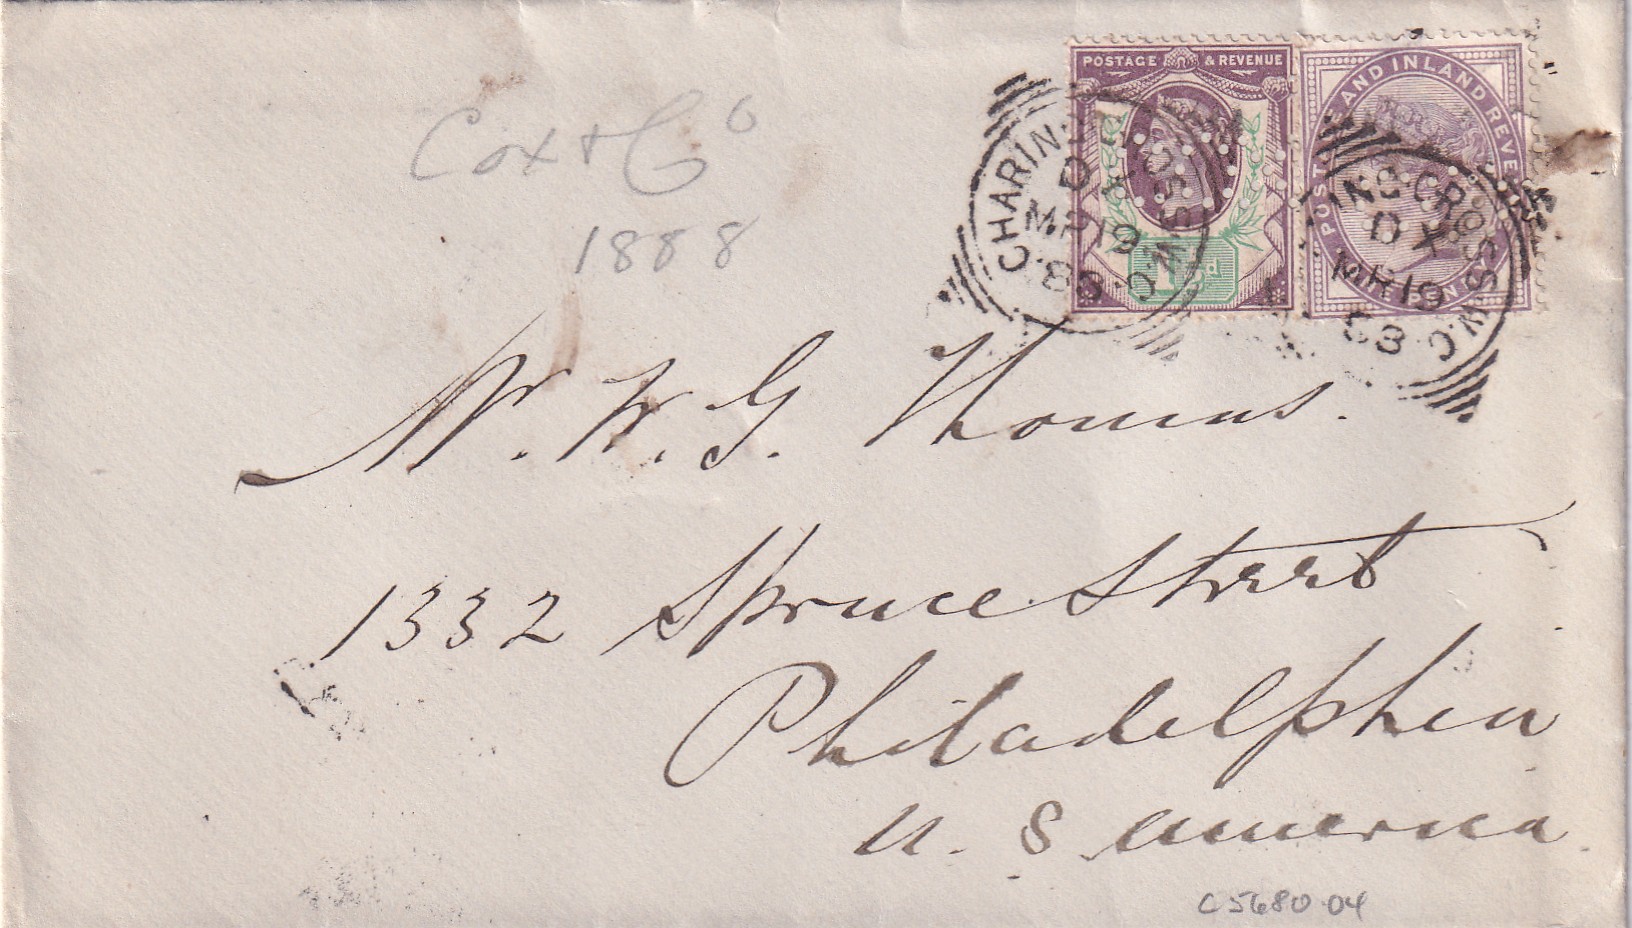 POSTAGE & REVENUE
1½d
POSTAGE AND INLAND REVENUE
ONE PENNY
CHARING CROSS W.C.
DX
MR 19
88
CHARING CROSS W.C.
DX
MR 19
88
Cox & Co
1888
Mr. W. G. Thomas.
1332 Spruce Street
Philadelphia
U. S America.
C5680.04